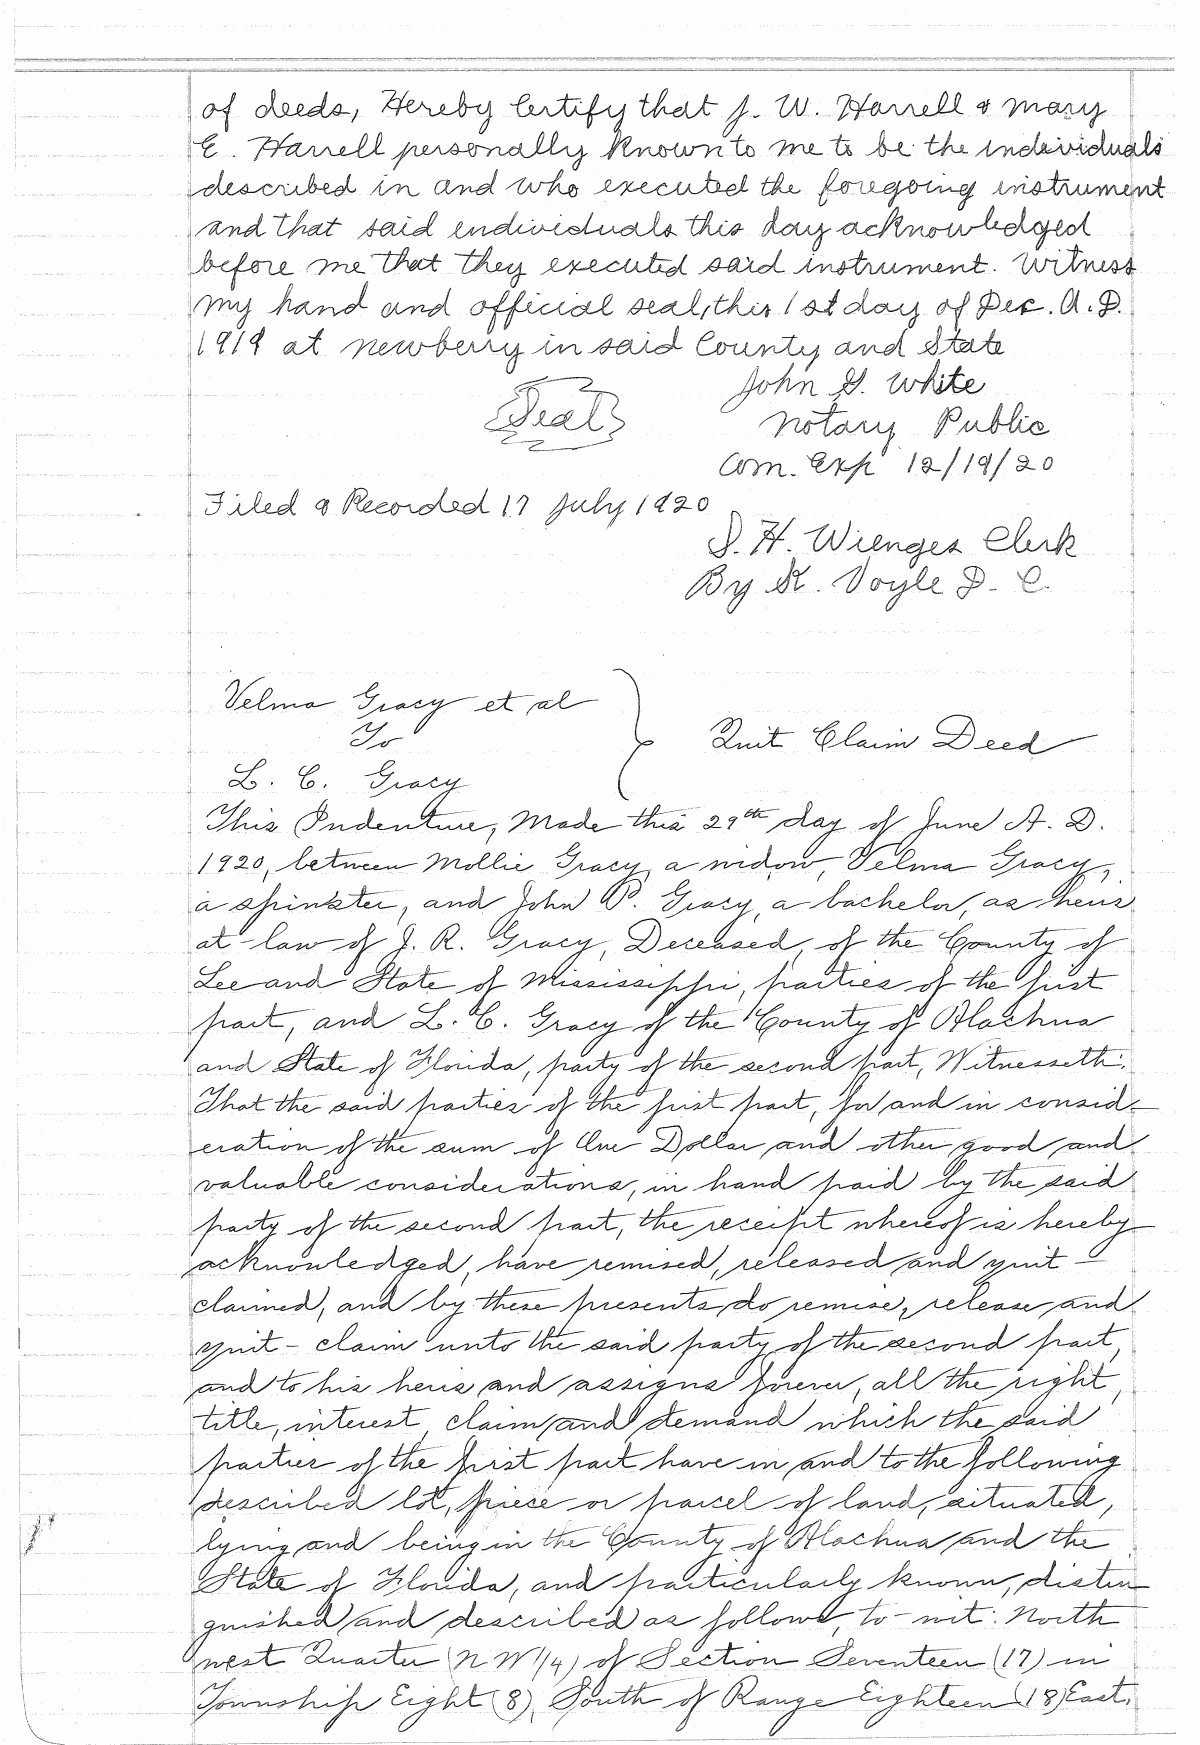 of deeds, Hereby Certify that J. W. Harrell & Mary
E. Harrell personally known to me to be the individuals
described in and who executed the foregoing instrument
and that said endividuals this day acknowledged
before me that they executed said instrument. Witness
my hand and official seal, this 1st day of Dec. A.D.
1919 at Newberry in said County and State
John G. White
Seal
Notary Public
Com. Exp 12/19/20
Filed & Recorded 17 July 1920
S. H. Wienges Clerk
By R. Voyle D. C.
Velma Gracy et al
To
Quit Claim Deed
L. C. Gracy
This Indenture, Made this 29th day of June A. D.
1920, between Mollie Gracy, a widow, Velma Gracy,
a spinster, and John P. Gracy, a bachelor, as heirs
at-law of J. R. Gracy, Deceased, of the County of
Lee and State of Mississippi, parties of the first
part, and L. C. Gracy of the County of Alachua
and State of Florida, party of the second part, Witnesseth:
That the said parties of the first part, for and in consid-
eration of the sum of One Dollar and other good and
valuable considerations, in hand paid by the said
party of the second part, the receipt whereof is hereby
acknowledged, have remised, released and quit-
claimed, and by these presents do remise, release and
quit-claim unto the said party of the second part,
and to his heirs and assigns forever, all the right,
title, interest, claim and demand which the said
parties of the first part have in and to the following
described lot, piece or parcel of land, situated,
lying and being in the County of Alachua and the
State of Florida, and particularly known, distin-
guished and described as follows, to-wit: North
west Quarter (NW1/4) of Section Seventeen (17) in
Township Eight (8), South of Range Eighteen (18) East.